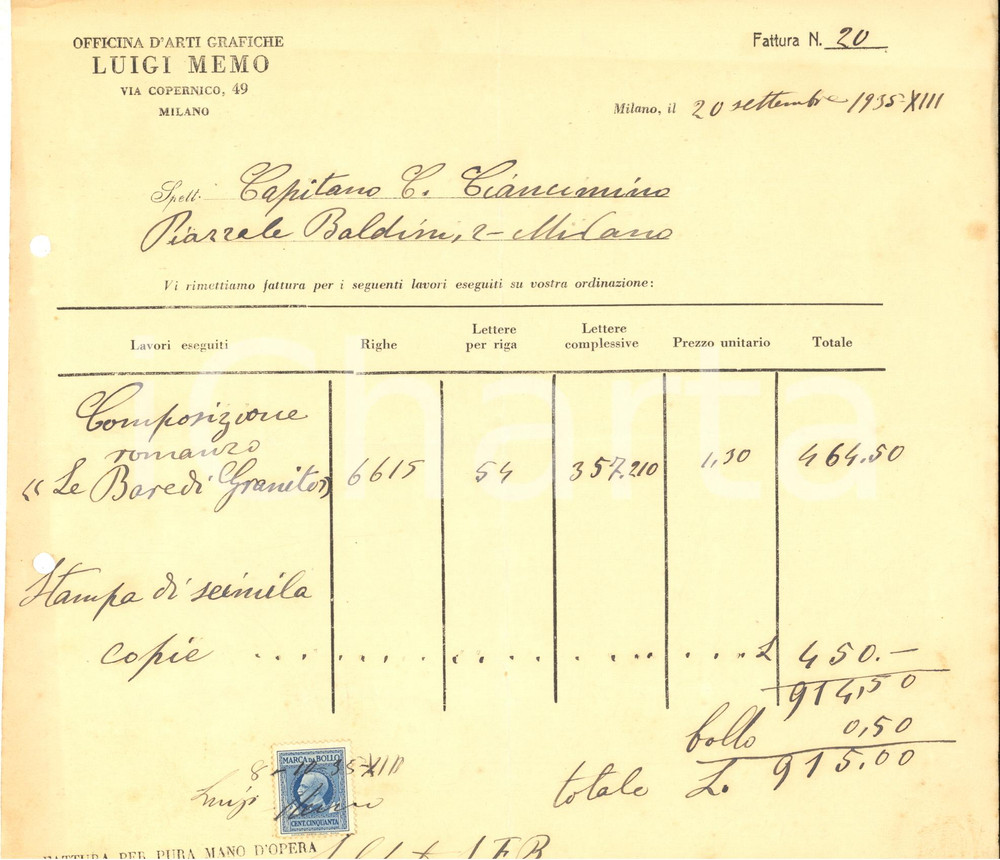 OFFICINA D'ARTI GRAFICHE
LUIGI MEMO
VIA COPERNICO, 49
MILANO
Fattura N. 20
Milano, il 20 settembre 1935-XIII
Spett. Capitano C. Ciancimino
Piazzale Baldini, 2 - Milano
Vi rimettiamo fattura per i seguenti lavori eseguiti su vostra ordinazione:
Lavori eseguiti Righe Lettere per riga Lettere complessive Prezzo unitario Totale
Composizione
romanzo
"Le Bare di Granito" 6615 54 357.210 1,30 464.50
Stampa di seimila
copie . . . . . . . . . . . . . . . . . £ 450.-
914,50
bollo 0,50
totale L. 915.00
MARCA DA BOLLO
8-12-35-XIII
Luigi Memo
CENT. CINQUANTA
FATTURA PER PURA MANO D'OPERA
iCharta